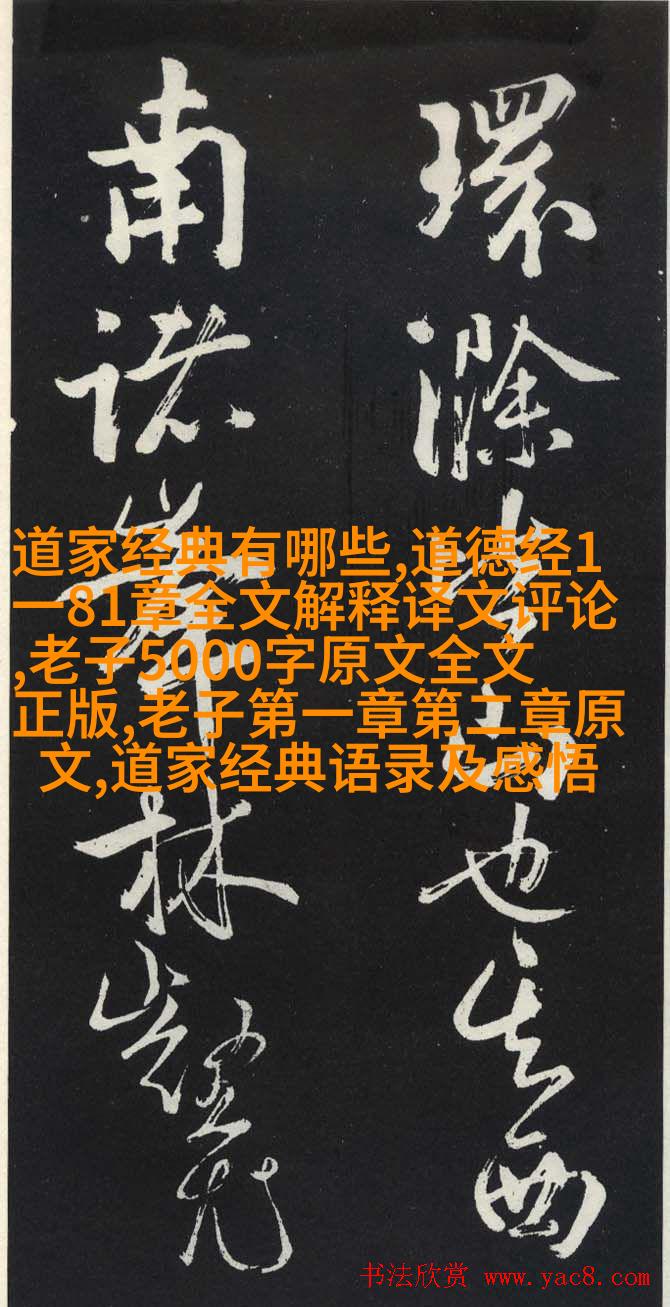 環滁皆山也其西
南諸峯林壑尤
道家经典有哪些,道德经1
一81章全文解释译文评论
,老子5000字原文全文
正版,老子第一章第二章原
文,道家经典语录及感悟
书法欣赏 www.yac8.com